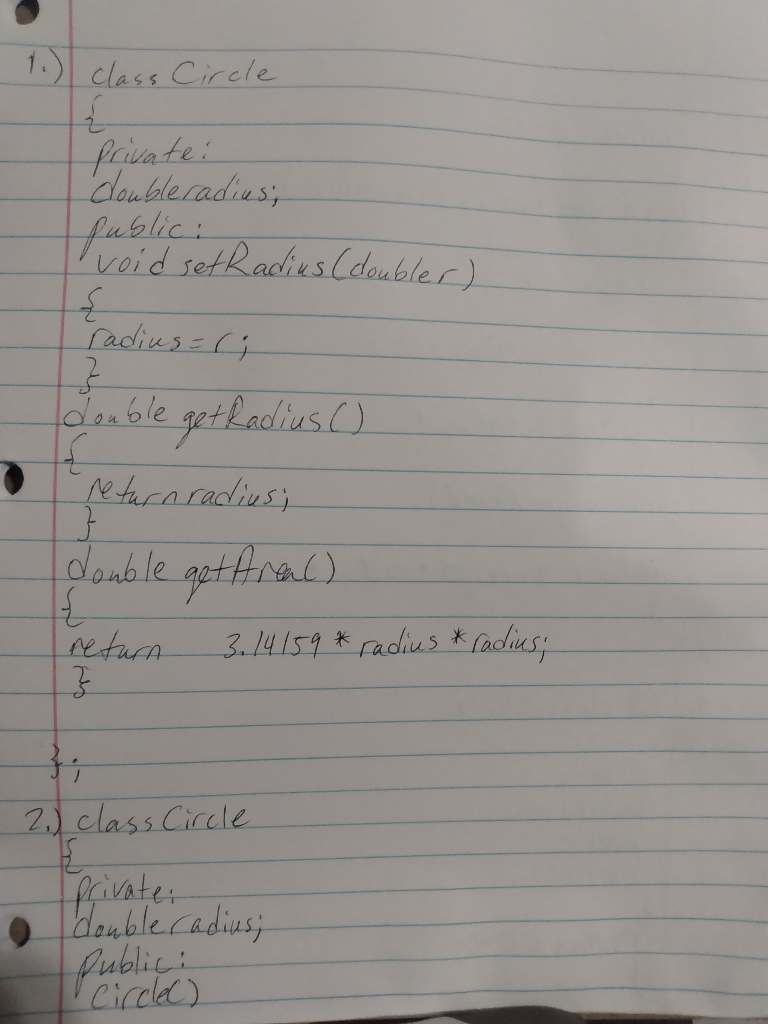 1.) class Circle
{
private:
doubleradius;
public:
void setRadius(doubler)
{
radius=r;
}
double getRadius()
{
returnradius;
}
double getArea()
{
return 3.14159 * radius * radius;
}
};
2.) class Circle
{
private:
doubleradius;
public:
Circle()